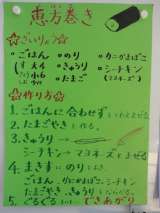 恵方巻き
☆ざいりょう☆
・ごはん ・のり ・カニかまぼこ
・きゅうり ・シーチキン
・たまご (マヨネーズ)
☆作り方☆
1. ごはんに合わせずをいれまぜる
2. たまごやきを作る。
3. きゅうりを
シーチキンとマヨネーズをまぜる
4. まきすにのりをしき、
ごはん、カニかまぼこ、シーチキン
たまごやき、きゅうり
5. ぐるぐる できあがり